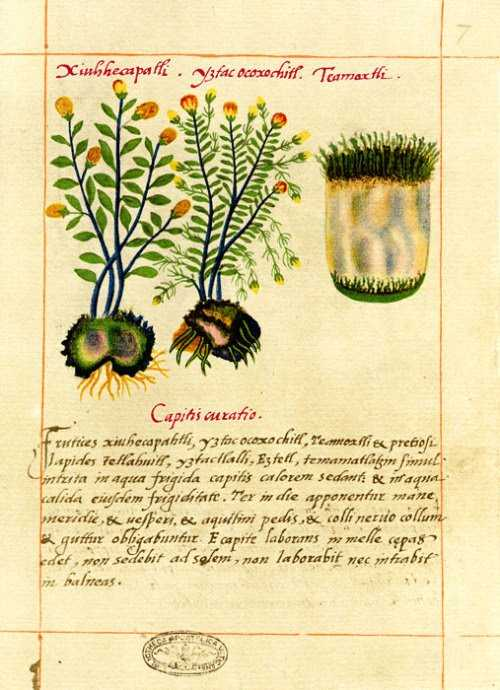 7
Xiuhhecapahtli . Yztac ocoxochitl. Teamoxtli .
Capitis curatio.
Frutices xiuhecapahtli, yztac ocoxochitl, Teamoxtli & pretiosi
lapides tetlahuitl, yztactlalli, Eztetl, temamatlatzin simul
intrita in aqua frigida capitis calorem sedant: & in aqua
calida eiusdem frigiditatē. Ter in die apponentur mane,
meridie, & uesperi, & aquilini pedis, & colli neruo collum
& guttur obligabuntur. E capite laborans in melle cepas
edet, non sedebit ad solem, non laborabit nec intrabit
in balneas.
BIBLIOTHECA APOSTOLICA VATICANA